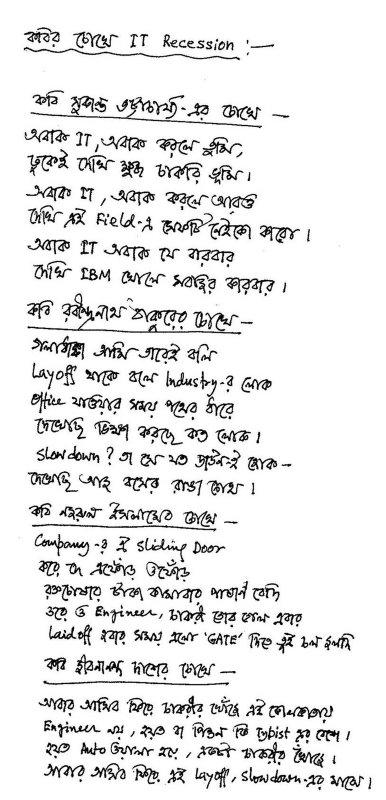 কবির চোখে IT Recession :—
কবি সুকান্ত ভট্টাচার্য্য-এর চোখে —
অবাক IT, অবাক করলে তুমি,
ঢুকেই দেখি ক্ষুব্ধ চাকরি ভূমি।
অবাক IT, অবাক করলে আরও
দেখি এই Field-এ সেফটি নেইকো কারো।
অবাক IT অবাক যে বারবার
দেখি IBM খোলে সবজির কারবার।
কবি রবীন্দ্রনাথ ঠাকুরের চোখে —
গলাধাক্কা আমি তারেই বলি
Layoff যাকে বলে Industry-র লোক
Office যাওয়ার সময় পথের ধারে
দেখেছি ভিক্ষা করছে কত লোক।
Slowdown? তা সে যত ডাউন-ই হোক —
দেখেছি আহ্ বসের রাঙা চোখ।
কবি নজরুল ইসলামের চোখে —
Company-র ঐ Sliding Door
করে দে এফোঁড় ওফোঁড়
রক্তচোষার টাকা কামাবার বেদি
ওরে ও Engineer, চাকরী তোর গেল এবার
Laid off হবার সময় এলো 'GATE' দিতে তুই চল জলদি
কবি জীবনানন্দ দাশের চোখে —
আবার আসিব ফিরে চাকরীর খোঁজে এই কোলকাতায়
Engineer নয়, হয়ত বা পিওন কি typist এর বেশে।
হয়ত Auto ওয়ালা হয়ে, একটা চাকরীর খোঁজে।
আবার আসিব ফিরে এই Layoff, Slowdown-এর মাঝে।